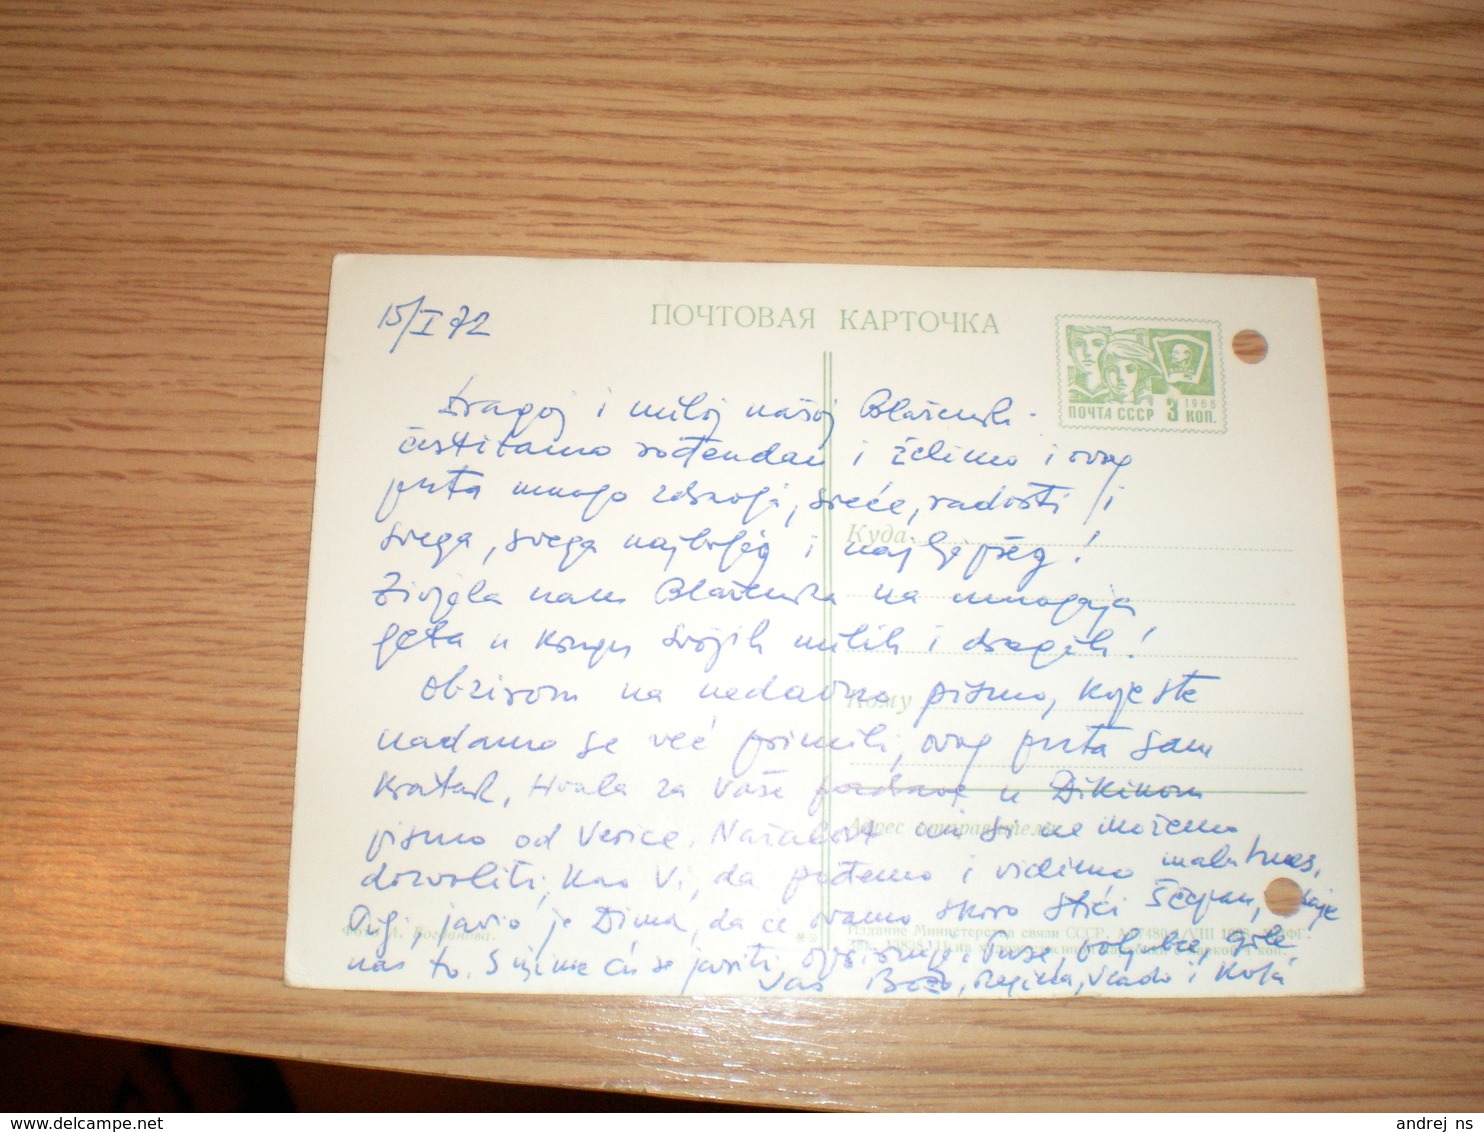 15/I 72
ПОЧТОВАЯ КАРТОЧКА
1966
ПОЧТА СССР 3 КОП.
Dragoj i miloj našoj Blaženki
čestitamo rođendan i želimo i ovog
puta mnogo zdravlja, sreće, radosti i
svega, svega najboljeg i najljepšeg!
Živjela nam Blaženka na mnogaja
ljeta u krugu svojih milih i dragih!
Куда
Obzirom na nedavno pismo, koje ste
Кому
nadamo se već primili, ovog puta sam
kratak. Hvala za Vaše pozdrave u Dikinom
pismo od Verice. Nažalost mi si ne možemo
Адрес отправителя
dozvoliti, kao Vi, da pođemo i vidimo
javio je Dima, da će ovamo skoro stići Stjepan,
Фото И. Богданова.
Издание Министерства связи СССР.
nas to. S njime ću se javiti
Vaš Božo, Regina, Vlado i Kolja
andrej ns